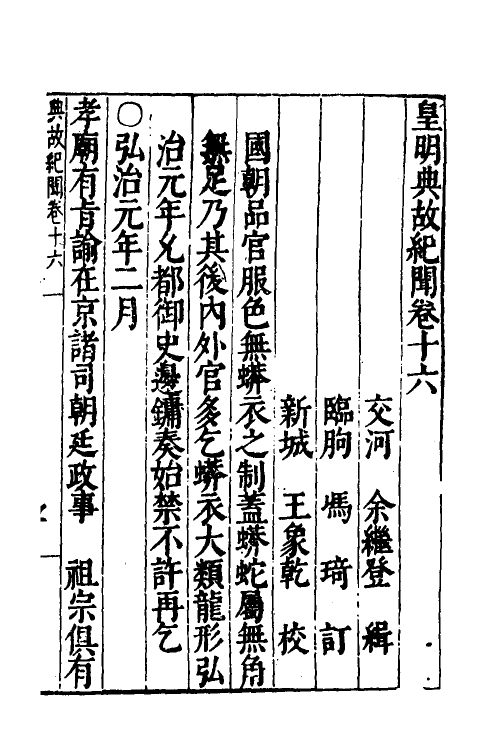 皇明典故紀聞卷十六
交河 余繼登 緝
臨朐 馮琦 訂
新城 王象乾 校
國朝品官服色無蟒衣之制蓋蟒蛇屬無角
無足乃其後内外官多乞蟒衣大類龍形弘
治元年乂都御史邊鏞奏始禁不許再乞
○弘治元年二月
孝廟有旨諭在京諸司朝廷政事 祖宗俱有
典故紀聞卷十六 一